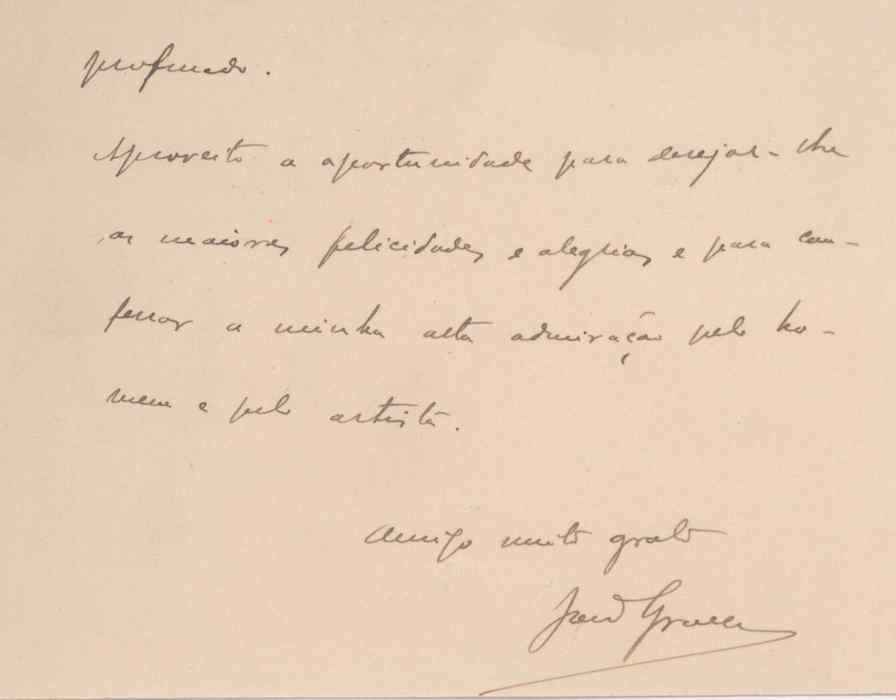 profundo.
Aproveito a oportunidade para desejar-lhe
as maiores felicidades e alegrias e para con-
fessar a minha alta admiração pelo ho-
mem e pelo artista.
Amigo muito grato